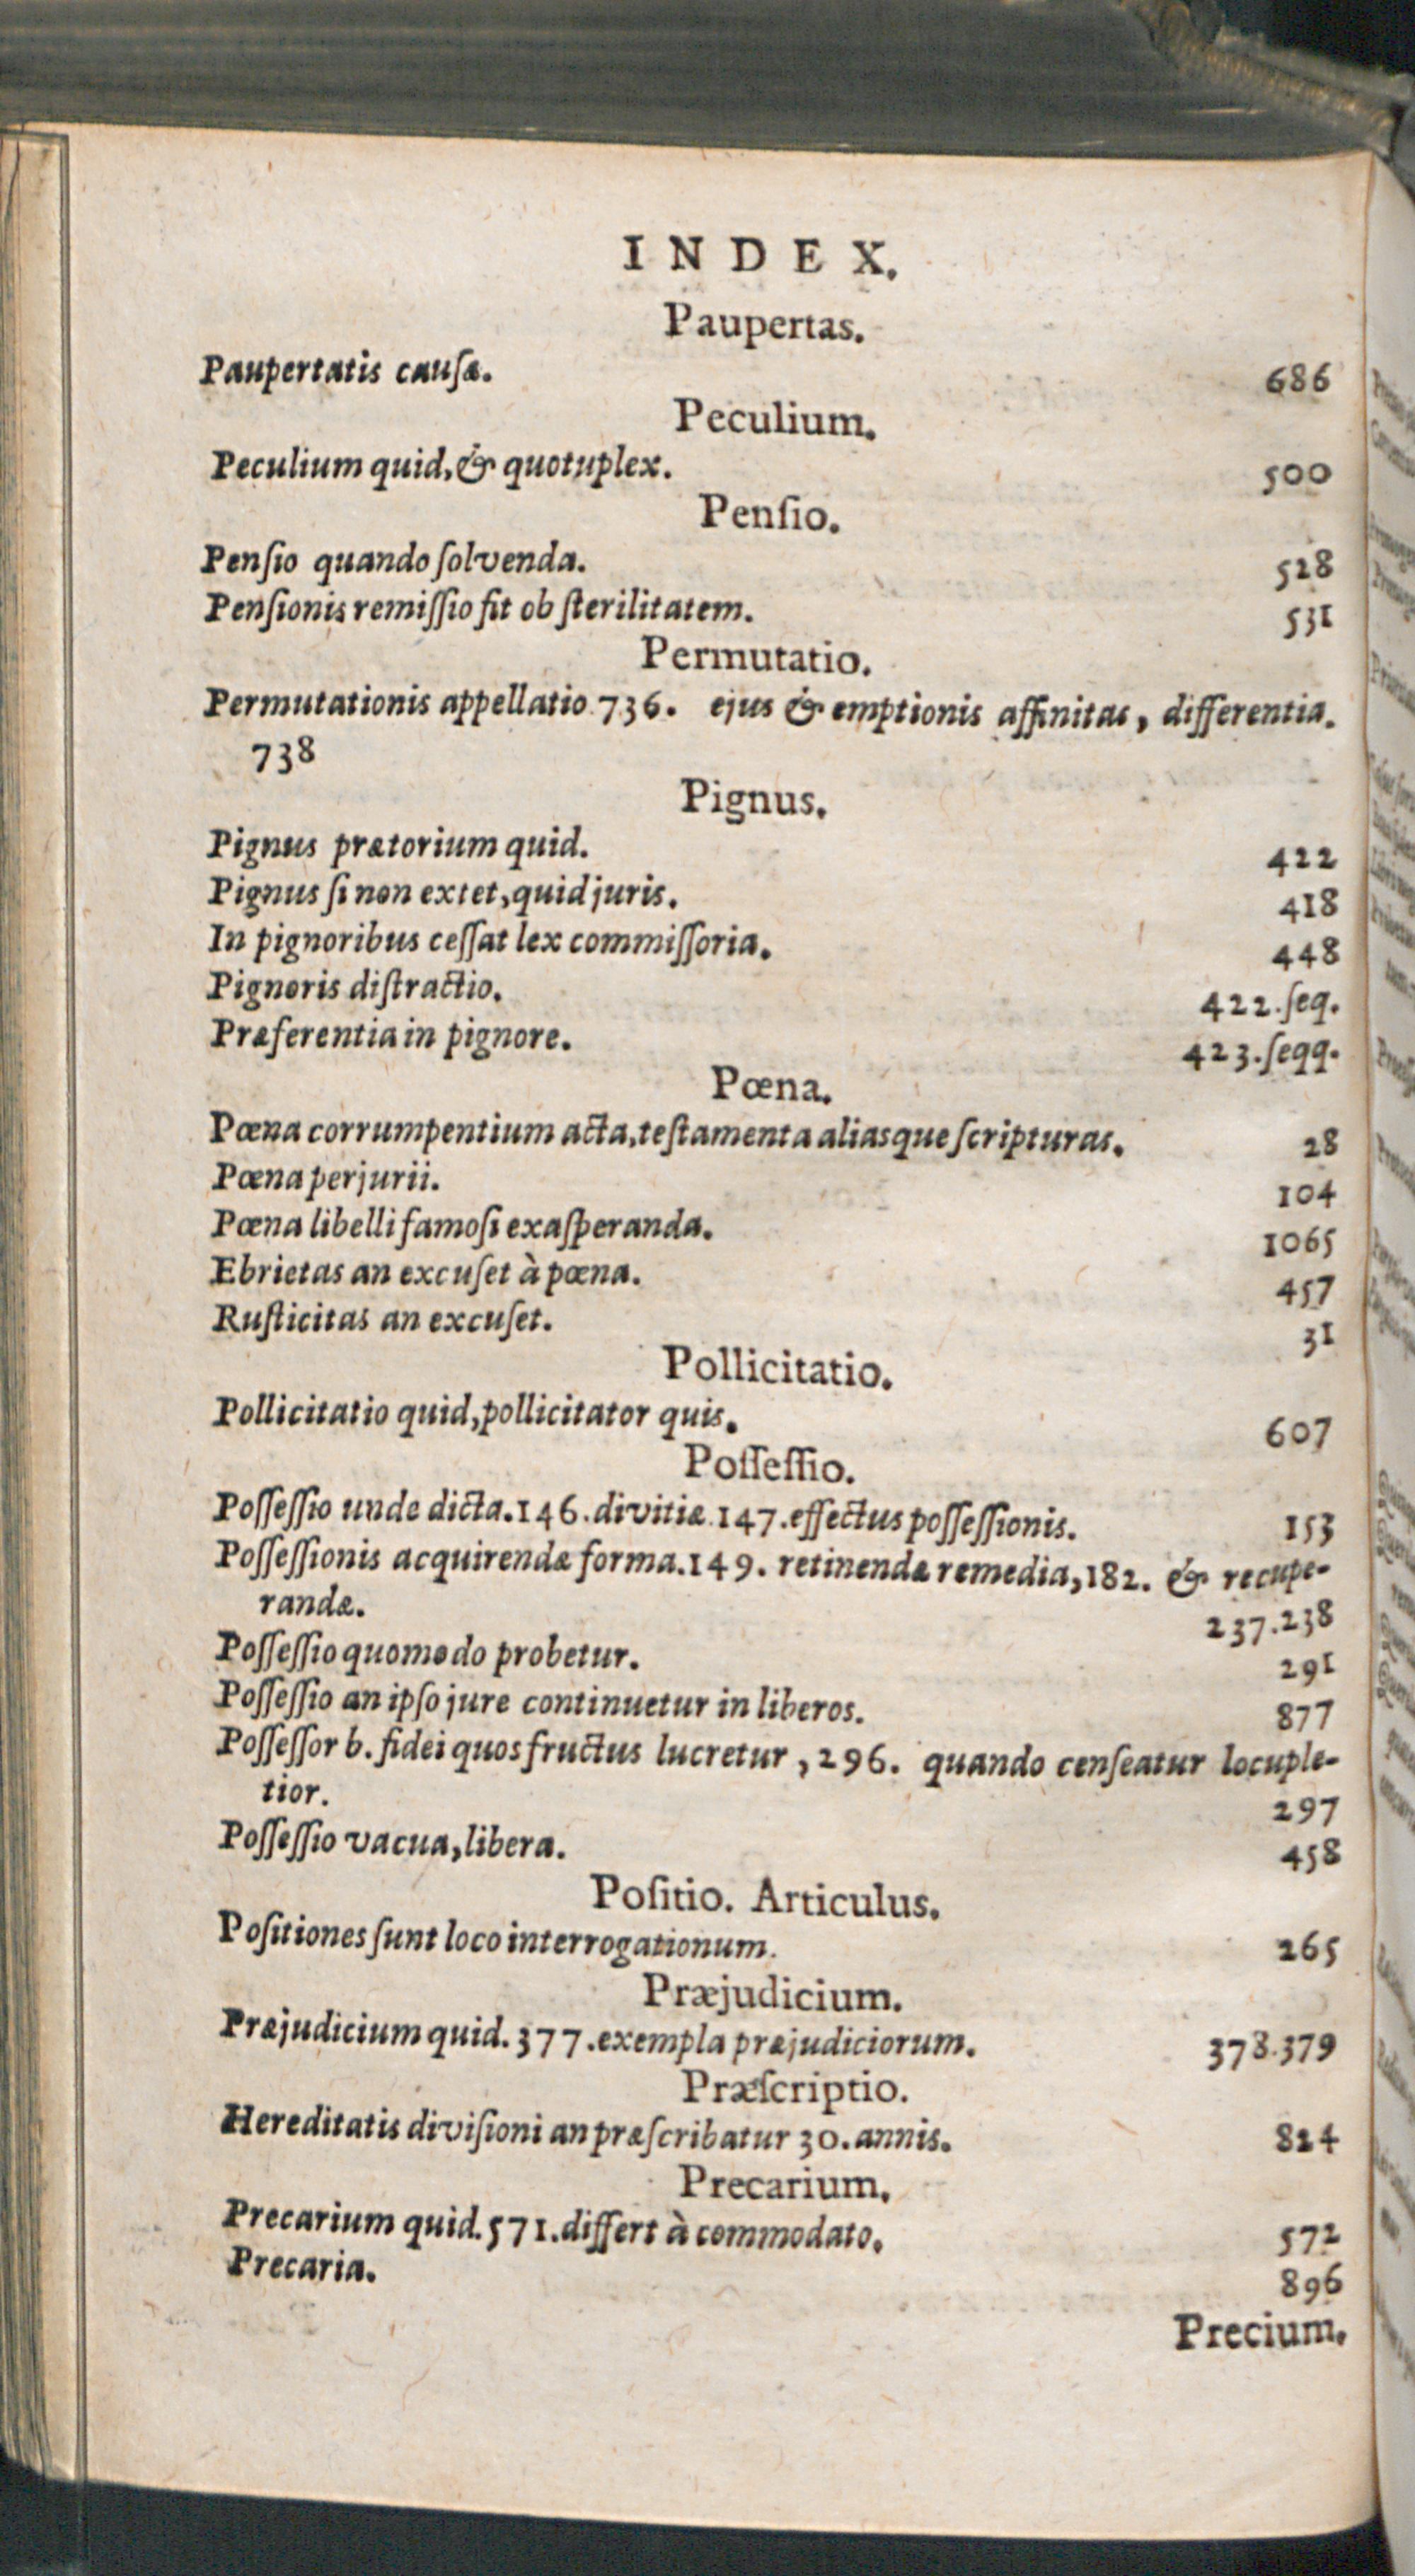 INDEX.
Paupertas.
Paupertatis causæ. 686
Peculium.
Peculium quid, & quotuplex. 500
Pensio.
Pensio quando solvenda. 528
Pensionis remissio fit ob sterilitatem. 531
Permutatio.
Permutationis appellatio 736. ejus & emptionis affinitas, differentia.
738
Pignus.
Pignus prætorium quid. 422
Pignus si non extet, quid juris. 418
In pignoribus cessat lex commissoria. 448
Pignoris distractio. 422. seq.
Præferentia in pignore. 423. seqq.
Pœna.
Pœna corrumpentium acta, testamenta aliasque scripturas. 28
Pœna perjurii. 104
Pœna libelli famosi exasperanda. 1065
Ebrietas an excuset à pœna. 457
Rusticitas an excuset. 31
Pollicitatio.
Pollicitatio quid, pollicitator quis. 607
Possessio.
Possessio unde dicta. 146. divitiæ 147. effectus possessionis. 153
Possessionis acquirendæ forma. 149. retinendæ remedia, 182. & recupe-
randæ. 237.238
Possessio quomodo probetur. 291
Possessio an ipso jure continuetur in liberos. 877
Possessor b. fidei quos fructus lucretur, 296. quando censeatur locuple-
tior. 297
Possessio vacua, libera. 458
Positio. Articulus.
Positiones sunt loco interrogationum. 265
Præjudicium.
Præjudicium quid. 377. exempla præjudiciorum. 378.379
Præscriptio.
Hereditatis divisioni an præscribatur 30. annis. 824
Precarium.
Precarium quid. 571. differt à commodato. 572
Precaria. 896
Precium.